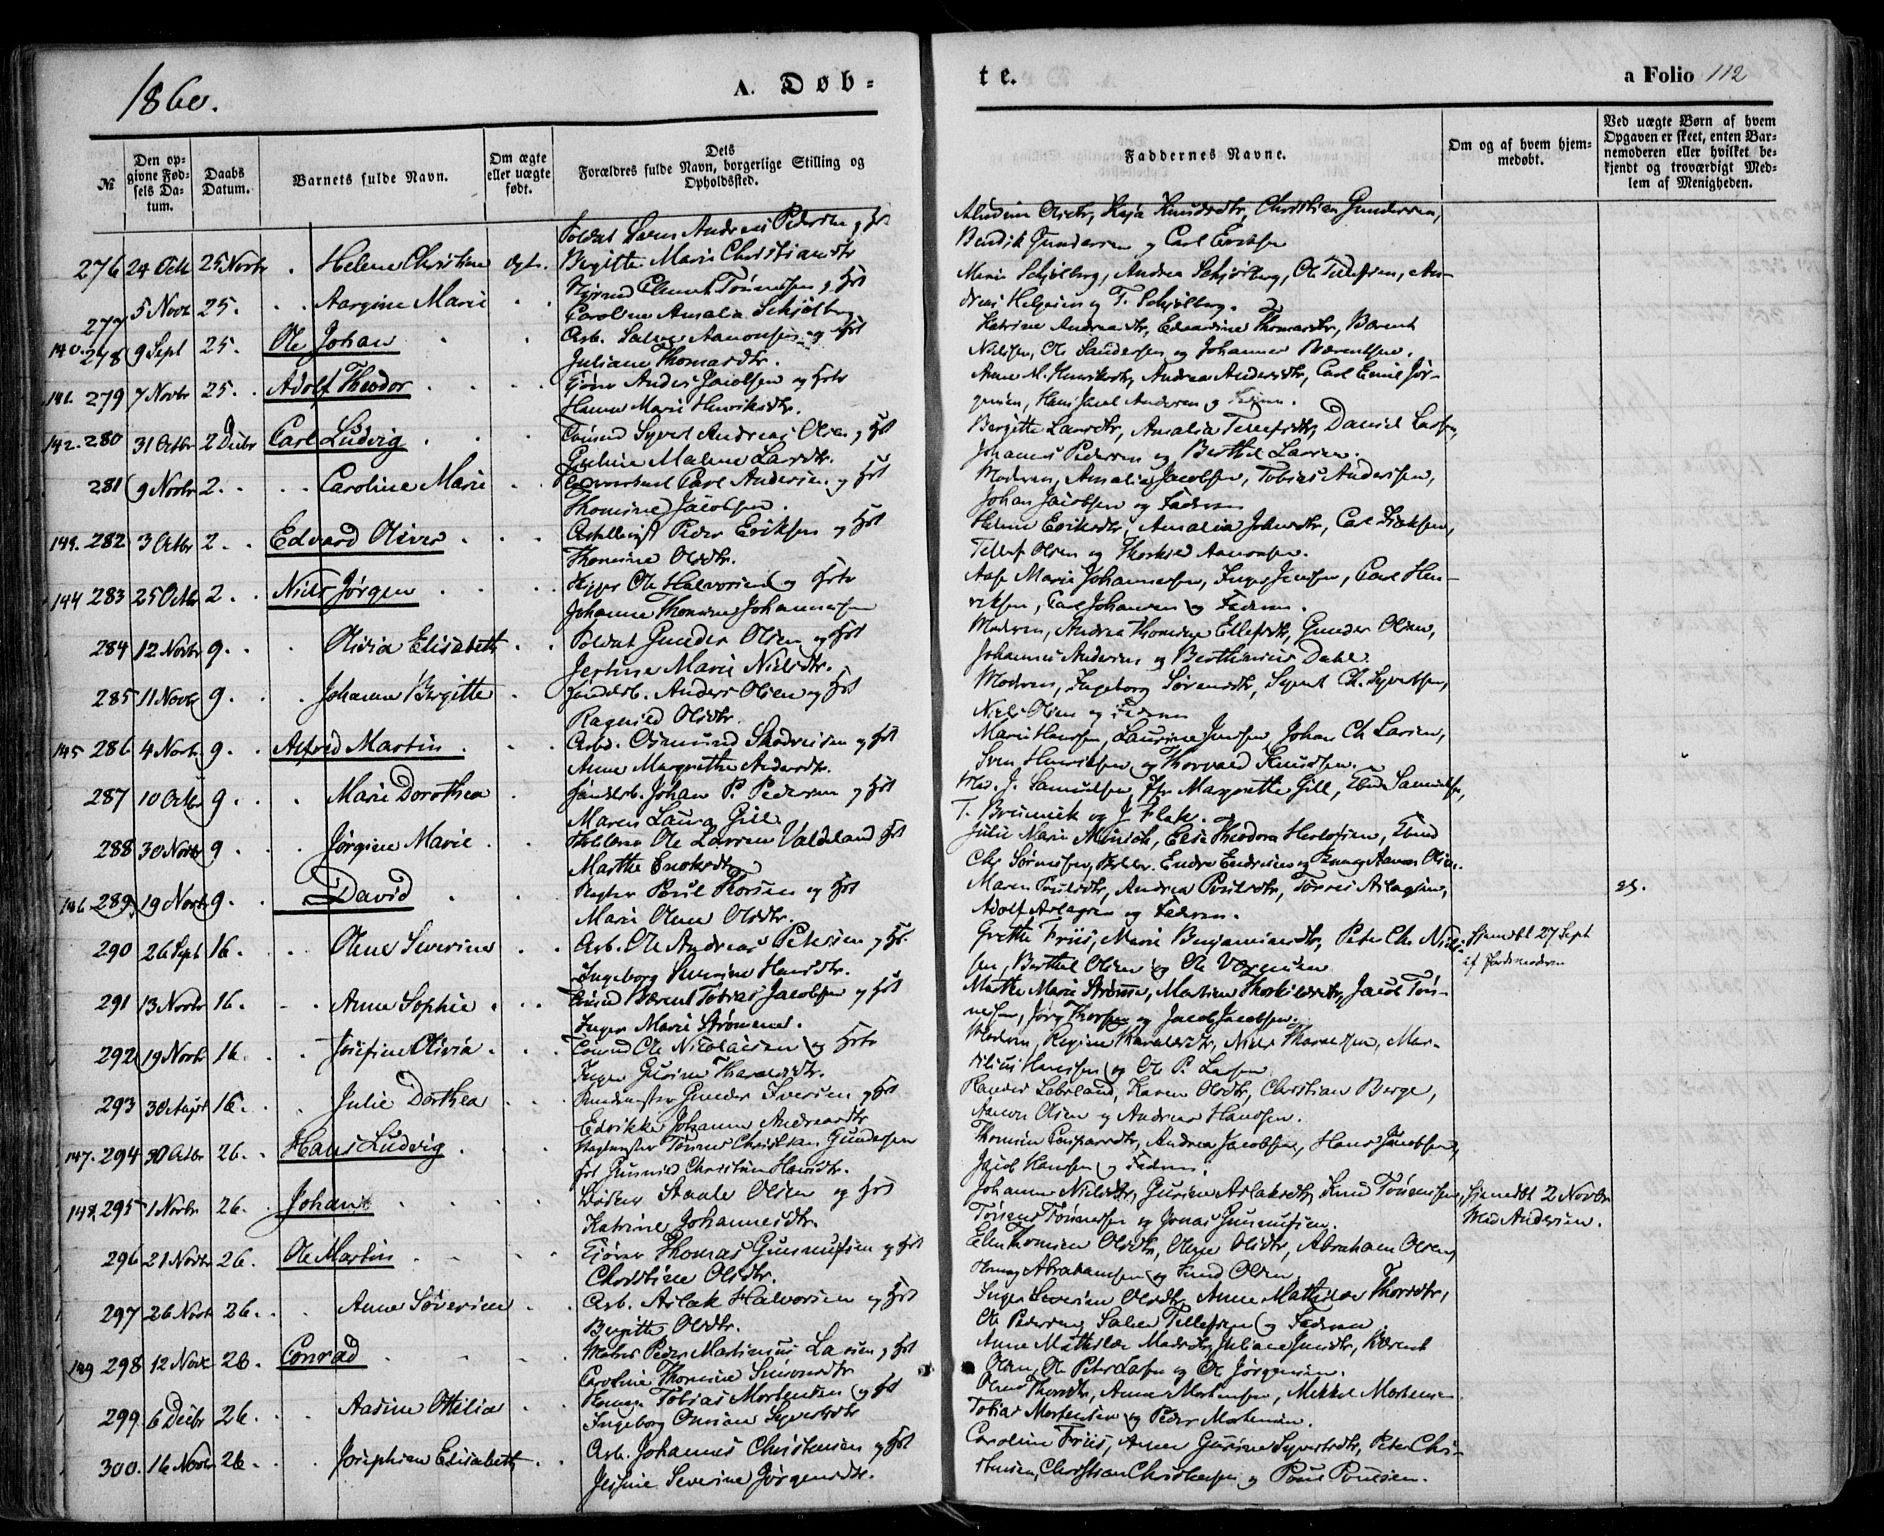 1860.
A. Døb-
te.
a Folio 112
№
Den opgivne Fødsels Datum.
Daabs Datum.
Barnets fulde Navn.
Om ægte eller uægte født.
Dets Forældres fulde Navn, borgerlige Stilling og Opholdssted.
Faddernes Navne.
Om og af hvem hjemmedøbt.
Ved uægte Børn af hvem Opgaven er skeet, enten Barnemoderen eller hvilket bekjendt og troværdigt Medlem af Menigheden.
Soldat Søren Andreas Pedersen og Hst
Oldtr, Kaja Knudsdtr, Christian Gundersen,
276 24 Octb 25 Novbr Helene Christine Ægt. Birgitte Marie Christiansdtr
Bendik Gundersen og Carl Eriksen
Marie Schjølberg, Andrea Schjølberg, Ole Tellefsen, An-
277 5 Novb 25. Aargine Marie
Caroline Amalia Schjølberg
dreas Helgesen og T. Schjølberg.
140. 278 9 Sept 25. Ole Johan Arb. Salve Aanonsen og Hst
Katrine Andreasdtr, Edvardine Thomasdtr, Bærent
Juliane Thomasdtr.
Nielsen, Ole Sandersen og Johannes Bærentsen.
141. 279 7 Novbr 25. Adolf Theodor Anders Jacobsen og Hst
Anne M. Henriksdtr, Andrea Andersdtr, Carl Emil Jør-
Hanne Marie Henriksdtr.
gensen, Hans Jacob Andersen og Faderen.
142. 280 31 Octbr 2 Decbr Carl Ludvig Tømmd Syvert Andreas Olsen og Hst
Bergitte Larsdtr, Amalia Tellefsdtr, Daniel Larsen,
Guline Malene Larsdtr.
Johannes Pedersen og Berthel Larsen.
281 9 Novbr 2. Caroline Marie Carl Andersen og Hst
Moderen, Amalia Jacobsen, Tobias Andersen,
Thomine Jacobsen.
Johan Jacobsen og Faderen
282 3 Octbr 2. Edvard Oliver Peder Eriksen og Hst
Helene Eriksdtr, Amalia Johnsdtr, Carl Isaksen,
Thomine Olsdtr.
Tellef Olsen og Thorkild Aanonsen.
144 283 25 Octbr 2. Niels Jørgen Skipper Ole Halvorsen og Hst
Aase Marie Johannessen, Inger Jensen, Carl Hen-
Johanne Thomine Johannesen
riksen, Carl Johansen og Faderen.
284 12 Novbr 9. Olivia Elisabeth Soldat Gunder Olsen og Hst
Moderen, Andrea Thomine Ellefsdtr, Gunder Olsen,
Jertine Marie Nielsdtr.
Johannes Andersen og Berthinius Dahl.
285 11 Novbr 9. Johanne Birgitte Handelsb. Anders Olsen og Hst
Moderen, Ingeborg Sørensdtr, Syvert Ch. Syvertsen,
Ragnild Olsdtr.
Niels Olsen og Faderen
145 286 4 Novbr 9. Alfred Martin Arbd. Osmund og Hst
Marie Hansen, Laurine Jensen, Johan Ch. Larsen,
Anne Margrethe Andersdtr.
Sven Henriksen og Thorvald Knudsen.
287 10 Octbr 9. Marie Dorothea Handelsb. Johan P. Pedersen og Hst
Mad. J. Samuelsen, Jfr Margrethe Gill, Samuelsen,
Maren Laura Gill
T. Brunvik og J. Flak.
288 30 Novbr 9. Jørgine Marie Ole Larsen Valdeland Hst
Julie Marie Elise Theodora Herlofsen,
Marthe Enoksdtr
Chr. Sørensen, Endre Endresen og Aanon Olsen.
146 289 19 Novbr 9. David Poul Thorsen og Hst
Maren Poulsdtr, Andrea Poulsdtr, Tørres Aslagsen,
Marie Olene Olsdtr.
Adolf Aslagsen og Faderen.
290 26 Sept 16. Olene Severine Arb. Ole Andreas Petersen og Hst.
Grethe Friis, Marie Benjaminsdtr, Peter Chr. Niel-
Hjemdbt 27 Sept
af Jordemoderen
Ingeborg Severine Hansdtr.
sen, Berthel Olsen og Ole
291 13 Novbr 16. Anne Sophie Bærent Tobias Jacobsen og Hst
Marthe Marie Strømme, Martine Thorkildsdtr, Jacob Tøn-
Inger Marie Strømme.
nesen, Jørg Thorsen og Jacob Jacobsen.
292 19 Novbr 16. Josefine Olivia Tømmd Ole Nicolaisen og Hst
Moderen, Regine Haraldsdtr, Niels Tharaldsen, Mar-
Inger Gurine Tharaldsdtr.
Hansen og Ole P. Larsen.
293 30 August 16. Julie Dorthea Gunder Iversen og Hst
Karen Olsdtr, Christian Berge,
Johanne Andreasdtr
Aanon Olsen og Andreas Hansen.
147. 294 30 Octbr 26. Hans Ludvig Tønnes Christian Gundersen
Thomine Caspersdtr, Andrea Jacobsen, Hans Jacobsen,
Hst Gunnild Christine Hansdtr.
Jacob Hansen og Faderen.
148. 295 1 Novbr 26. Johan Staale Olsen og Hst
Johanne Nielsdtr, Gurine Aslaksdtr, Knud Tønnessen,
Hjemdbt 2 Novbr
Mad Andersen.
Katrine Johannesdtr
Tønnes Tønnesen og Jonas Gunnufsen.
296 21 Novbr 26. Ole Martin Thomas Gunnufsen og Hst
Ellen Thomine Olsdtr, Olene Olsdtr, Abraham Olsen,
Christine Olsdtr.
Abrahamsen og Knud Olsen
297 26 Novbr 26. Anne Severine Arb. Aslak Halvorsen og Hst
Inger Severine Olsdtr, Anne Mathilde Thorsdtr,
Birgitte Olsdtr.
Ole Pedersen, Salve Tellefsen og Faderen.
149 298 12 Novb 26. Conrad Matros Peder Martinius Larsen og Hst
Anne Mathilde Madsdtr, Juliane Jensdtr, Bærent
Caroline Thomine Simonsdtr
Olsen, Ole Peter Larsen og Ole Jørgensen.
299 6 Decbr 26. Aasine Otilia Tobias Mortensen og Hst
Olene Thorsdtr, Anne Mortensen, Mikkel Mortensen
Ingeborg Syvertsdtr
Tobias Mortensen og Peder Mortensen.
300. 16 Novbr 26. Josephine Elisabeth Arb. Johannes Christensen og Hst
Caroline Friis, Anne Gurine Syvertsdtr, Peter Chri-
Jessine Severine Jørgensdtr.
stensen, Christian Christensen og Poul Poulsen.